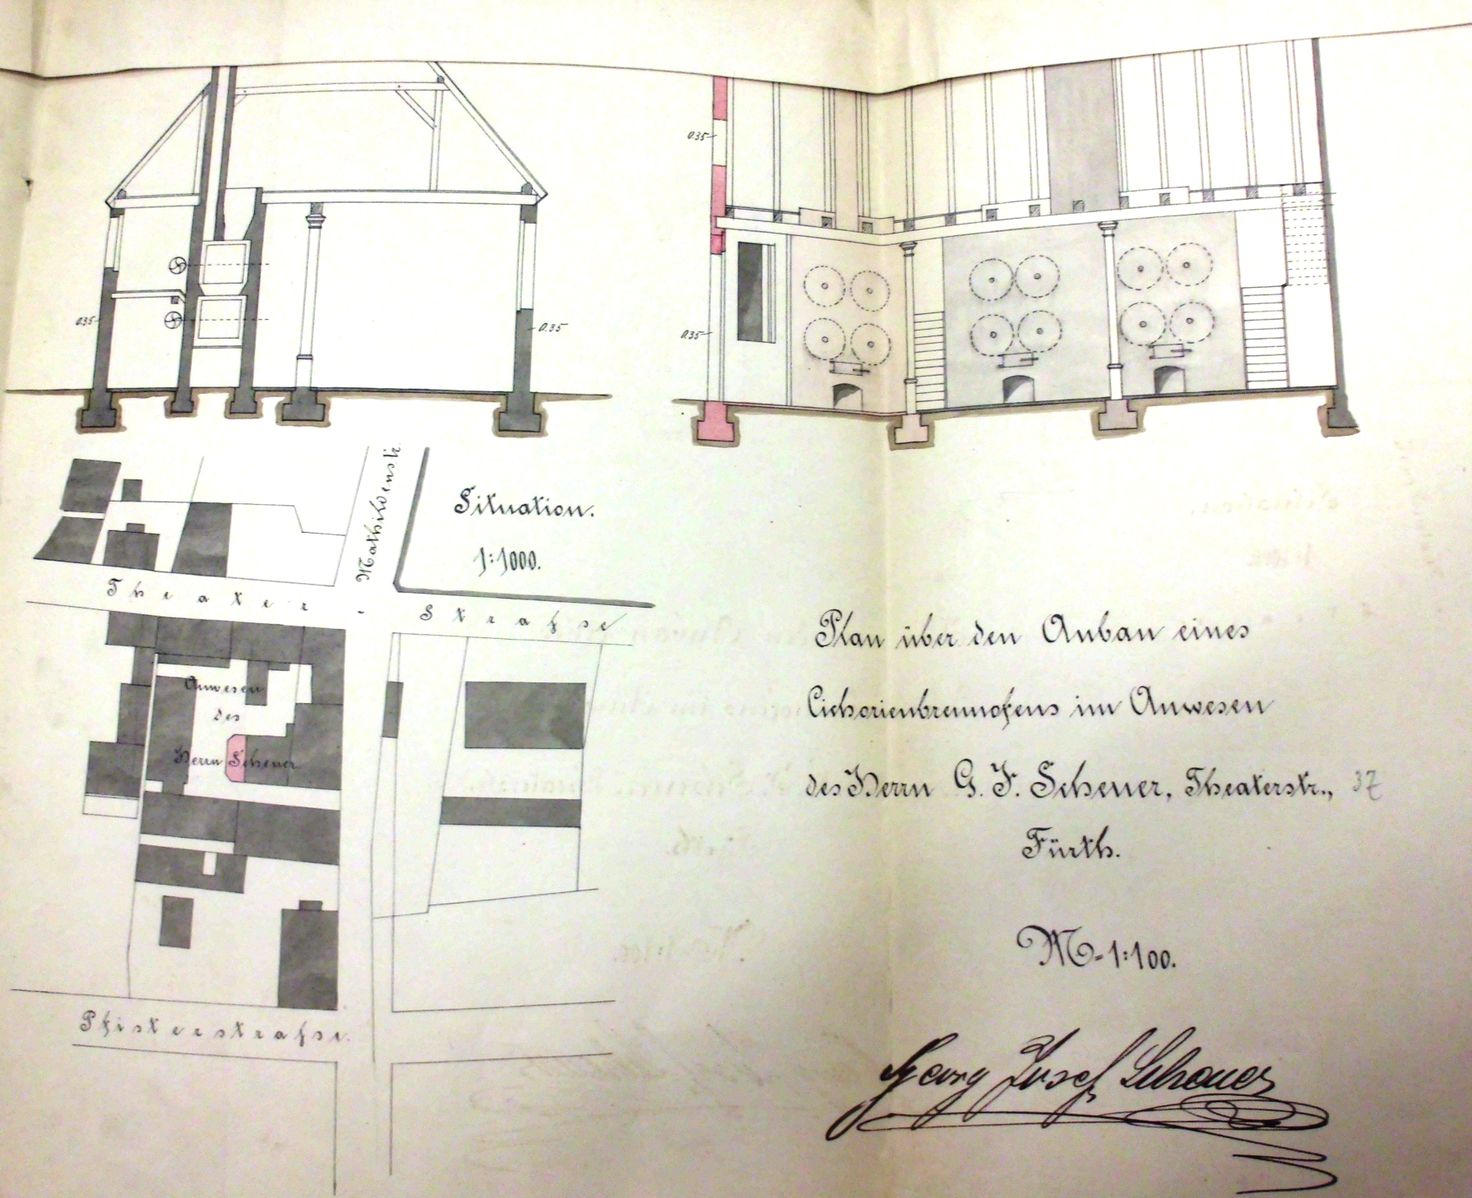 0.35
0.35
0.35
0.35
Situation.
1:1000.
Mathildenstr.
Theater-Strasse
Anwesen
des
Herrn Scheuer
Pfisterstrasse.
Plan über den Anbau eines
Cichorienbrennofens im Anwesen
des Herrn G. J. Scheuer, Theaterstr., 37
Fürth.
M=1:100.
Georg Josef Scheuer